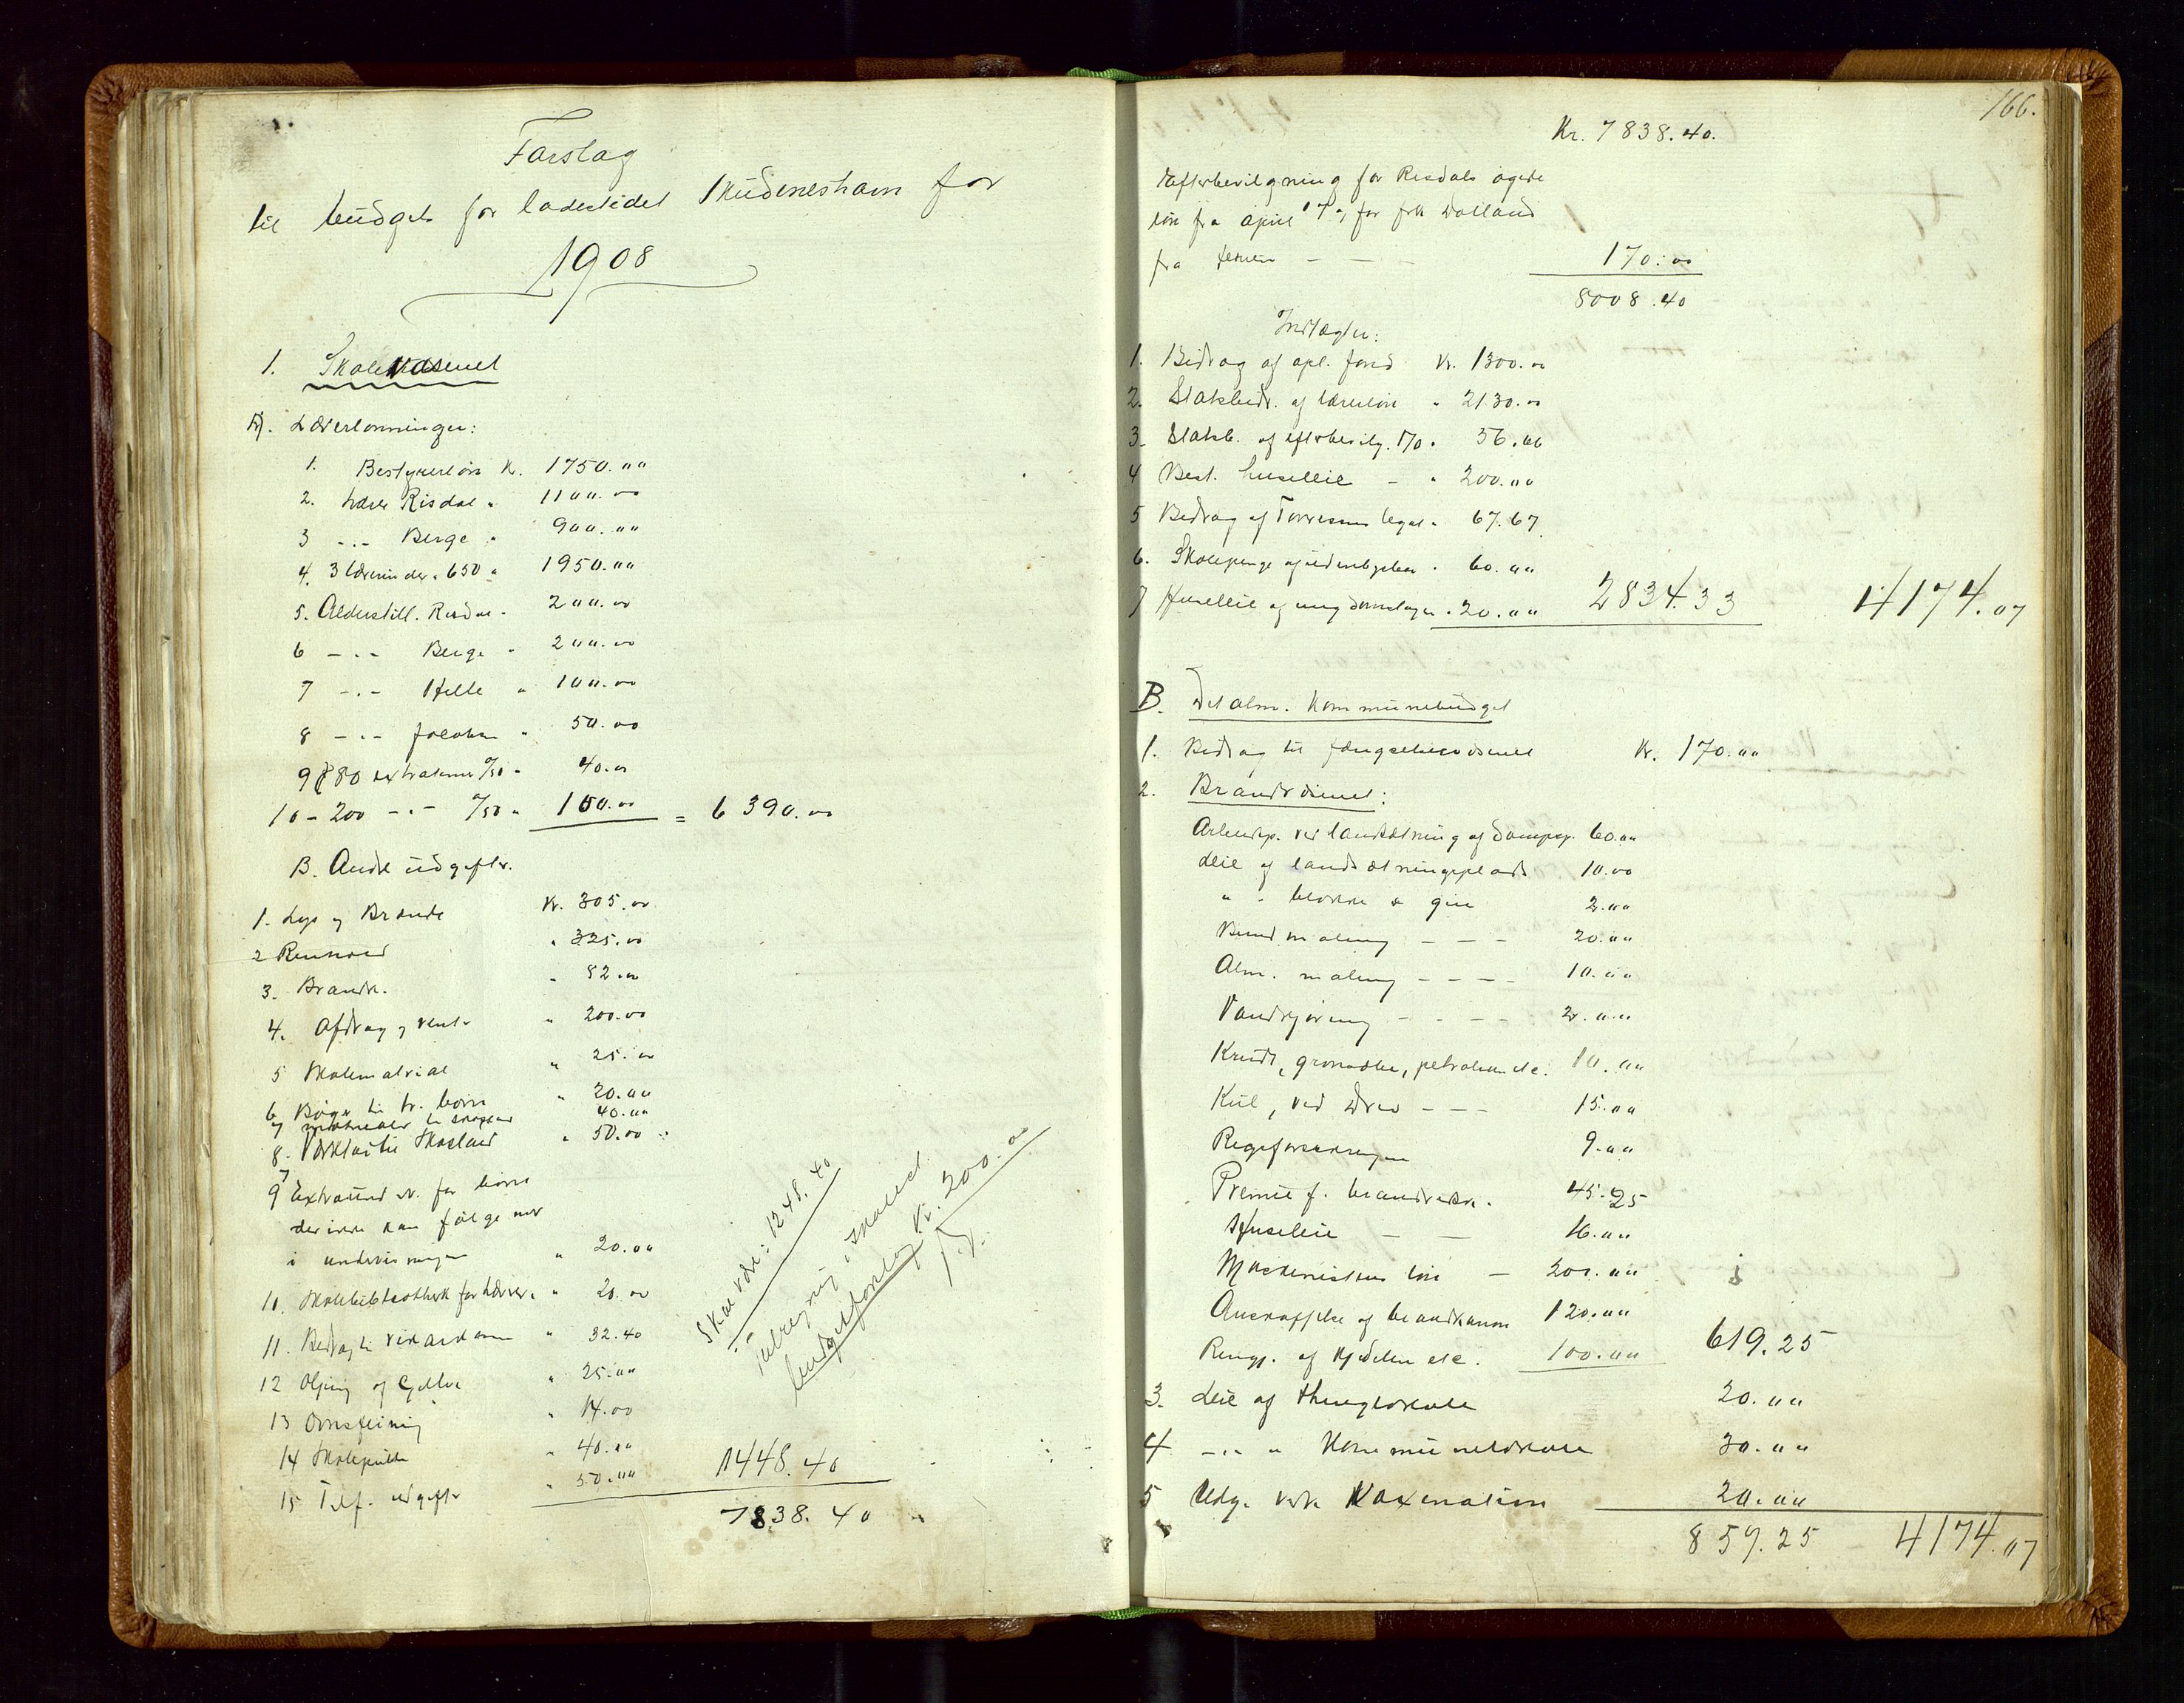 Forslag
til budget for ladestedet Skudeneshavn for
1908
1. Skolevæsenet
A). Lærerlønninger:
1. Bestyrerløn Kr. 1750.00
2. Lærer Risdal " 1100.00
3 -"- Berge " 900.00
4. 3 lærerinder à 650 " 1950.00
5. Alderstill. Risdal " 200.00
6 -"- Berge " 200.00
7 -"- Helle " 100.00
8 -"- Jacobsen " 50.00
9 80 extratimer a/50 " 40.00
10 - 200 -"- a/50 " 100.00 = 6390.00
B. Andre udgifter.
1. Lys og Brænde Kr. 305.00
2 Renhold " 325.00
3. Brandk. " 82.00
4. Afdrag og renter " 200.00
5 Skolematerial " 25.00
6 Bøger til fr. børn " 20.00
7 materialer til 40.00
8. Værktøi til Skoleud " 50.00
9 Extraund. v. for børn
der ikke kan følge med
i undervisningen " 20.00
10. Skolebibliothek for lærer. " 20.00
11. Bidrag til vikardom " 32.40
12 Oljing af Golve " 25.00
13 Ovnsfeining " 14.00
14 Skolepulte " 40.00
15 Tilf. udgifter " 50.00 1448.40
7838.40
Skal være: 1248.40
budgetforslag Kr. 200.00
166.
Kr. 7838.40.
Efterbevilgning for Risdals øgede
løn fra april 07, for frk Dolland
fra ferien - - - 170.00
8008.40
Indtægter:
1. Bidrag af opl. fond Kr. 1300.00
2. Statsbidr. af lærerløn " 2130.00
3. Statsb. af efterbevilg. 170 " 56.66
4 Best. husleie - " 200.00
5 Bidrag af Torresens legat " 67.67
6. Skolepenge af udenbysbør " 60.00
7 Husleie af ungdomslaget " 20.00 2834.33 4174.07
B. Det alm. Kommunebudget
1. Bidrag til fængselsvæsenet Kr. 170.00
2. Brandvæsenet:
Arbeidsp. ved landsætning af dampsp. 60.00
Leie af landsætningsplads 10.00
" " blokke & gier 2.00
Bund maling - - - 20.00
Alm. maling - - - - 10.00
Vandkjøring - - - - 2.00
Krudt, granader, petroleum etc. 10.00
Kul, ved Drev - - - 15.00
Regeforsikringen 9.00
Premie f. brandvæsn. 45.25
Husleie - - 16.00
Maskinistens løn - 200.00
Anskaffelse af brandkanon 120.00
Rengj. af Kjedelen etc. 100.00 619.25
3. Leie af thinglokale 20.00
4 -"- " Kommunelokale 30.00
5 Udg. ved Vaxination 20.00
859.25 4174.07